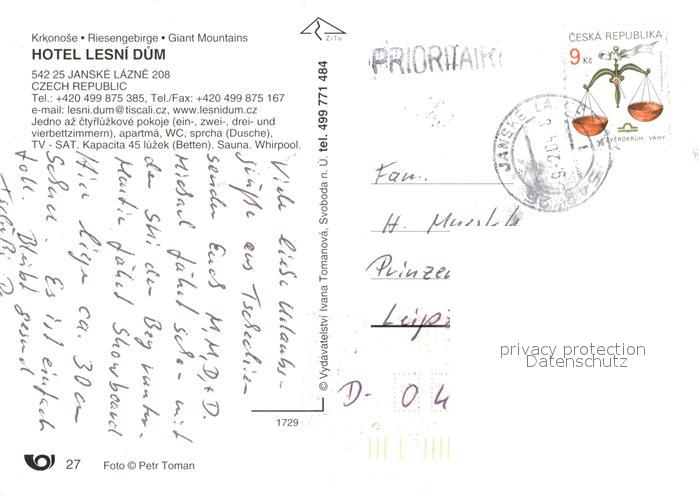 Krkonoše • Riesengebirge • Giant Mountains
HOTEL LESNÍ DŮM
542 25 JANSKÉ LÁZNĚ 208
CZECH REPUBLIC
Tel.: +420 499 875 385, Tel./Fax: +420 499 875 167
e-mail: lesni.dum@tiscali.cz, www.lesnidum.cz
Jedno až čtyřlůžkové pokoje (ein-, zwei-, drei- und
vierbettzimmern), apartmá, WC, sprcha (Dusche),
TV - SAT. Kapacita 45 lůžek (Betten). Sauna. Whirpool.
Viele liebe Urlaubs-
grüße aus Tschechien
senden Euch M, M, D + D.
Michael fährt schon mit
den Ski den Berg runter.
Martin fährt Snowboard
Hier liegen ca. 30 cm
Schnee. Es ist einfach
toll. Bleibt gesund
ZiTo
© Vydavatelství Ivana Tomanová, Svoboda n. Ú. tel. 499 771 484
1729
27
Foto © Petr Toman
PRIORITAIR
ČESKÁ REPUBLIKA
9 Kč
ZVĚROKRUH, VÁHY
JANSKÉ LÁ
Fam.
H.
Prinzen
Leipz
D- 04
privacy protection
Datenschutz